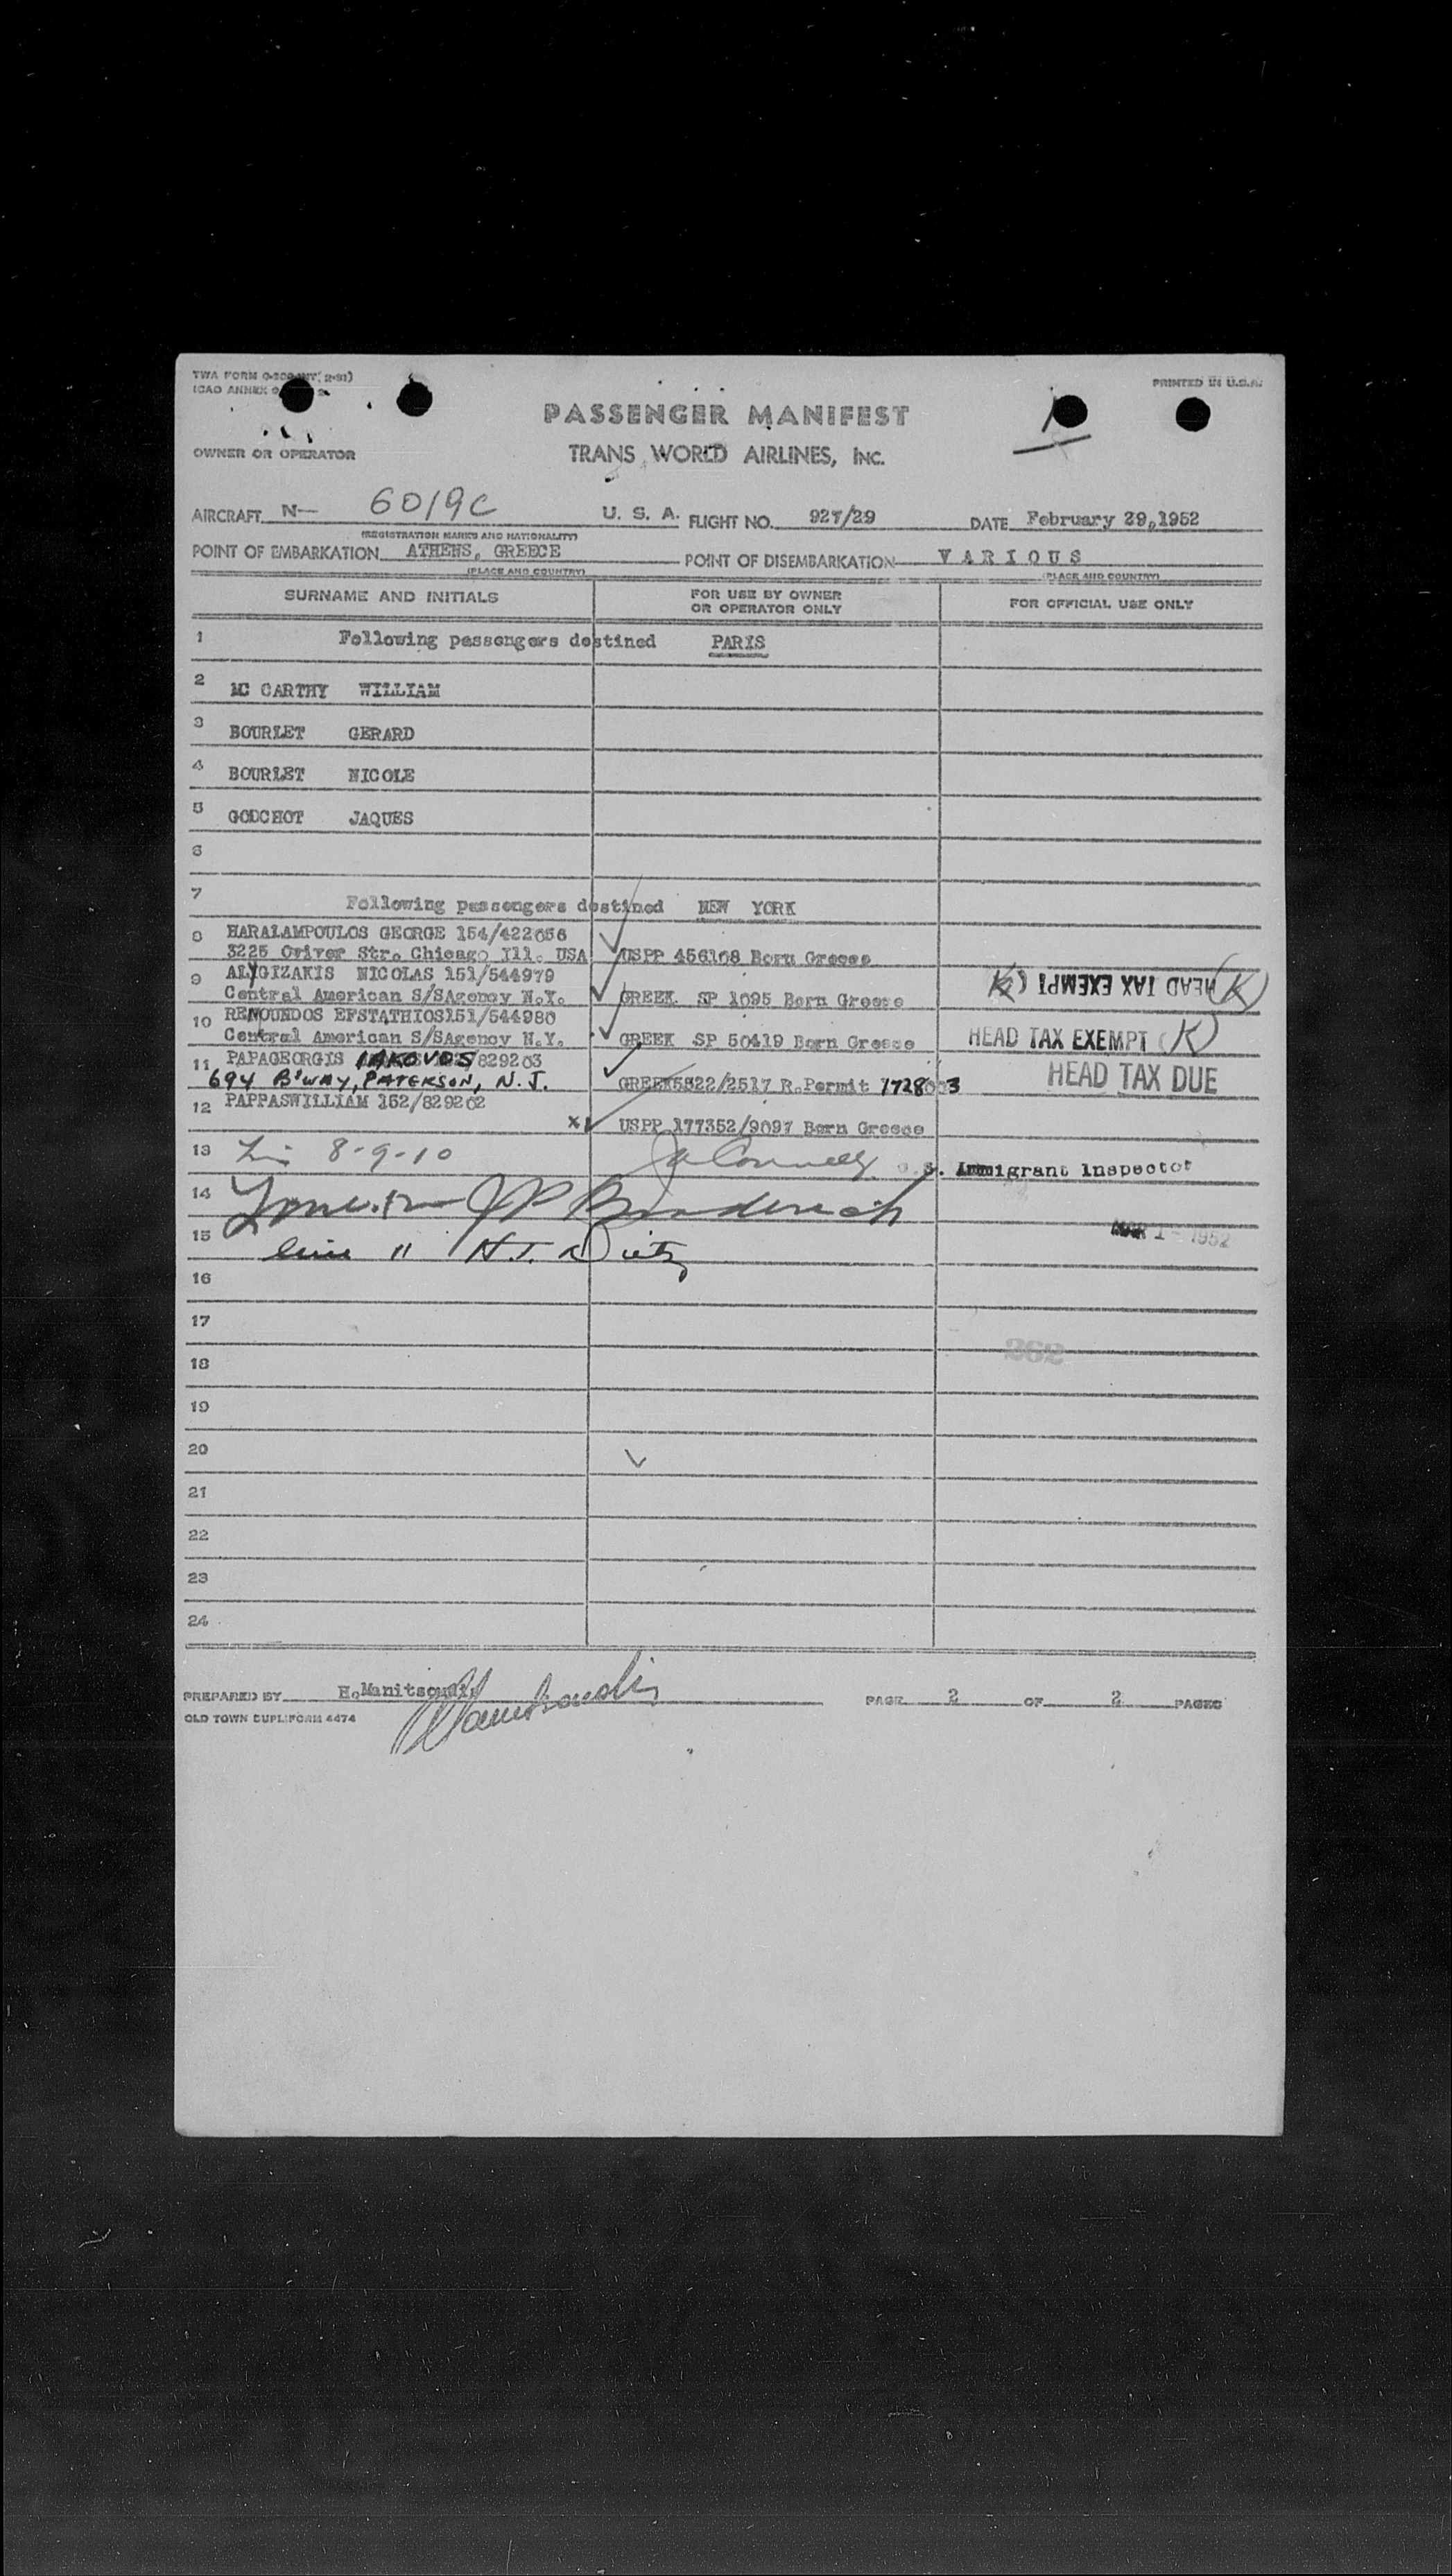 PRINTED IN U.S.A.
PASSENGER MANIFEST
OWNER OR OPERATOR
TRANS WORLD AIRLINES, INC.
AIRCRAFT N- 6019C U. S. A. FLIGHT NO. 927/29 DATE February 29,1952
(REGISTRATION MARKS AND NATIONALITY)
POINT OF EMBARKATION ATHENS, GREECE POINT OF DISEMBARKATION V A R I O U S
(PLACE AND COUNTRY) (PLACE AND COUNTRY)
SURNAME AND INITIALS FOR USE BY OWNER OR OPERATOR ONLY FOR OFFICIAL USE ONLY
1 Following passengers destined PARIS
2 MC CARTHY WILLIAM
3 BOURLET GERARD
4 BOURLET NICOLE
5 GODCHOT JAQUES
6
7 Following passengers destined NEW YORK
8 HARALAMPOULOS GEORGE 154/422056
3225 Str. Chicago Ill. USA USPP 456108 Born Greece
9 ALYGIZAKIS NICOLAS 151/544979
Central American S/SAgency N.Y. GREEK SP 1095 Born Greece HEAD TAX EXEMPT (K)
10 RENOUNDOS EFSTATHIOS151/544980
Central American S/SAgency N.Y. GREEK SP 50419 Born Greece HEAD TAX EXEMPT (K)
11 PAPAGEORGIS IAKOVOS /829203
694 B'WAY, PATERSON, N.J. GREEK5822/2517 R.Permit HEAD TAX DUE
12 PAPPASWILLIAM 152/829202
X USPP 177352/9097 Born Greece
13 8-9-10 U. S. Immigrant Inspector
14
15 line 11 H.J. Dietz MAR 1 - 1952
16
17
262
18
19
20
21
22
23
24
PREPARED BY H.Manitsoudis PAGE 2 OF 2 PAGES
OLD TOWN DUPLIFORM 4474